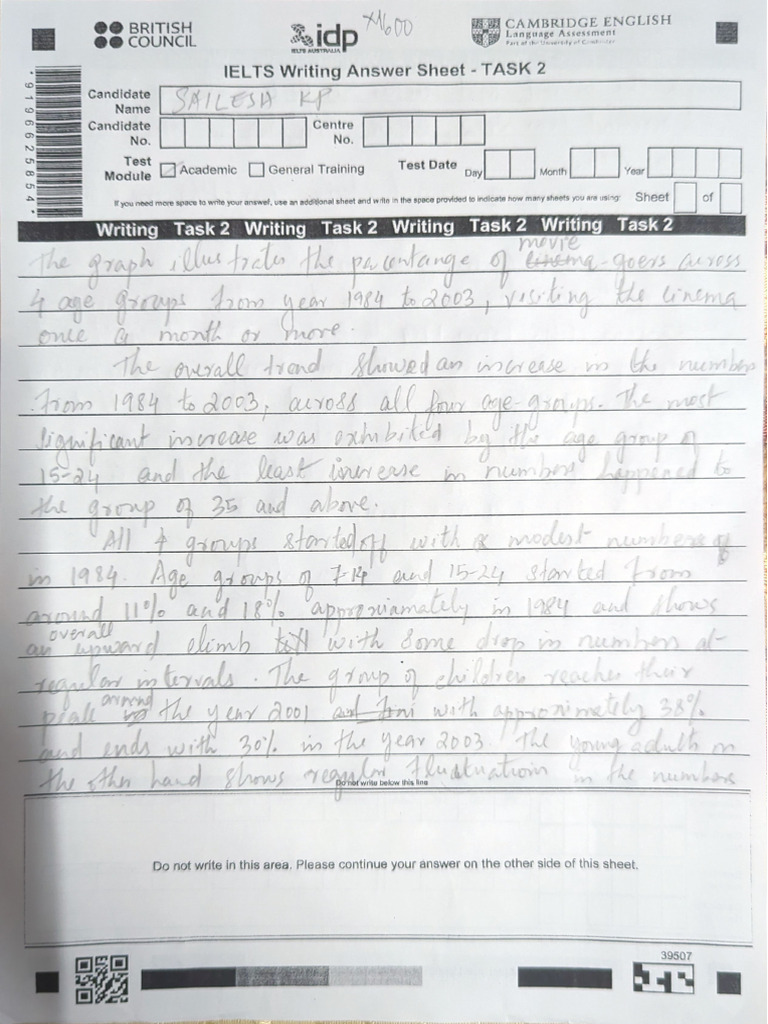 BRITISH COUNCIL
idp
IELTS AUSTRALIA
CAMBRIDGE ENGLISH
Language Assessment
Part of the University of Cambridge
IELTS Writing Answer Sheet - TASK 2
*919662585 4*
Candidate Name SAILESH KP
Candidate No. Centre No.
Test Module Academic General Training Test Date Day Month Year
If you need more space to write your answer, use an additional sheet and write in the space provided to indicate how many sheets you are using: Sheet of
Writing Task 2 Writing Task 2 Writing Task 2 Writing Task 2
movie
The graph illustrates the percentange of cinema-goers across
4 age groups from year 1984 to 2003, visiting the cinema
once a month or more.
The overall trend showed an increase in the numbers
from 1984 to 2003, across all four age-groups. The most
significant increase was exhibited by the age group of
15-24 and the least increase in numbers happened to
the group of 35 and above.
All 4 groups started off with a modest numbers of
in 1984. Age groups of 7-14 and 15-24 started from
around 11% and 18% approximately in 1984 and shows
overall
an upward climb with some drop in numbers at
regular intervals. The group of children reaches their
around
peak in the year 2001 with approximately 38%
and ends with 30% in the year 2003. The young adults on
the other hand shows regular fluctuations in the numbers
Do not write below this line
Do not write in this area. Please continue your answer on the other side of this sheet.
39507